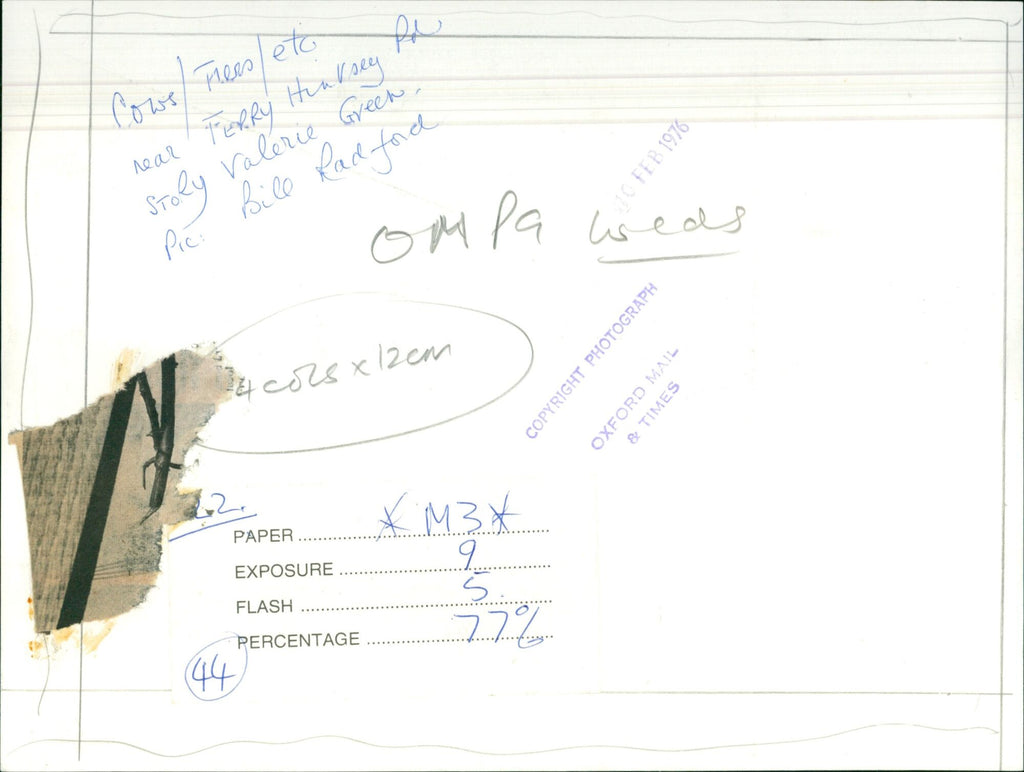 Cows/Trees/etc
near FERRY Hinksey Rd
STORY Valerie Green.
Pic: Bill Radford
10 FEB 1976
OM P9 Weds
4 cols x 12cm
COPYRIGHT PHOTOGRAPH
OXFORD MAIL
& TIMES
22.
PAPER *M3*
EXPOSURE 9
FLASH 5
PERCENTAGE 77%
44